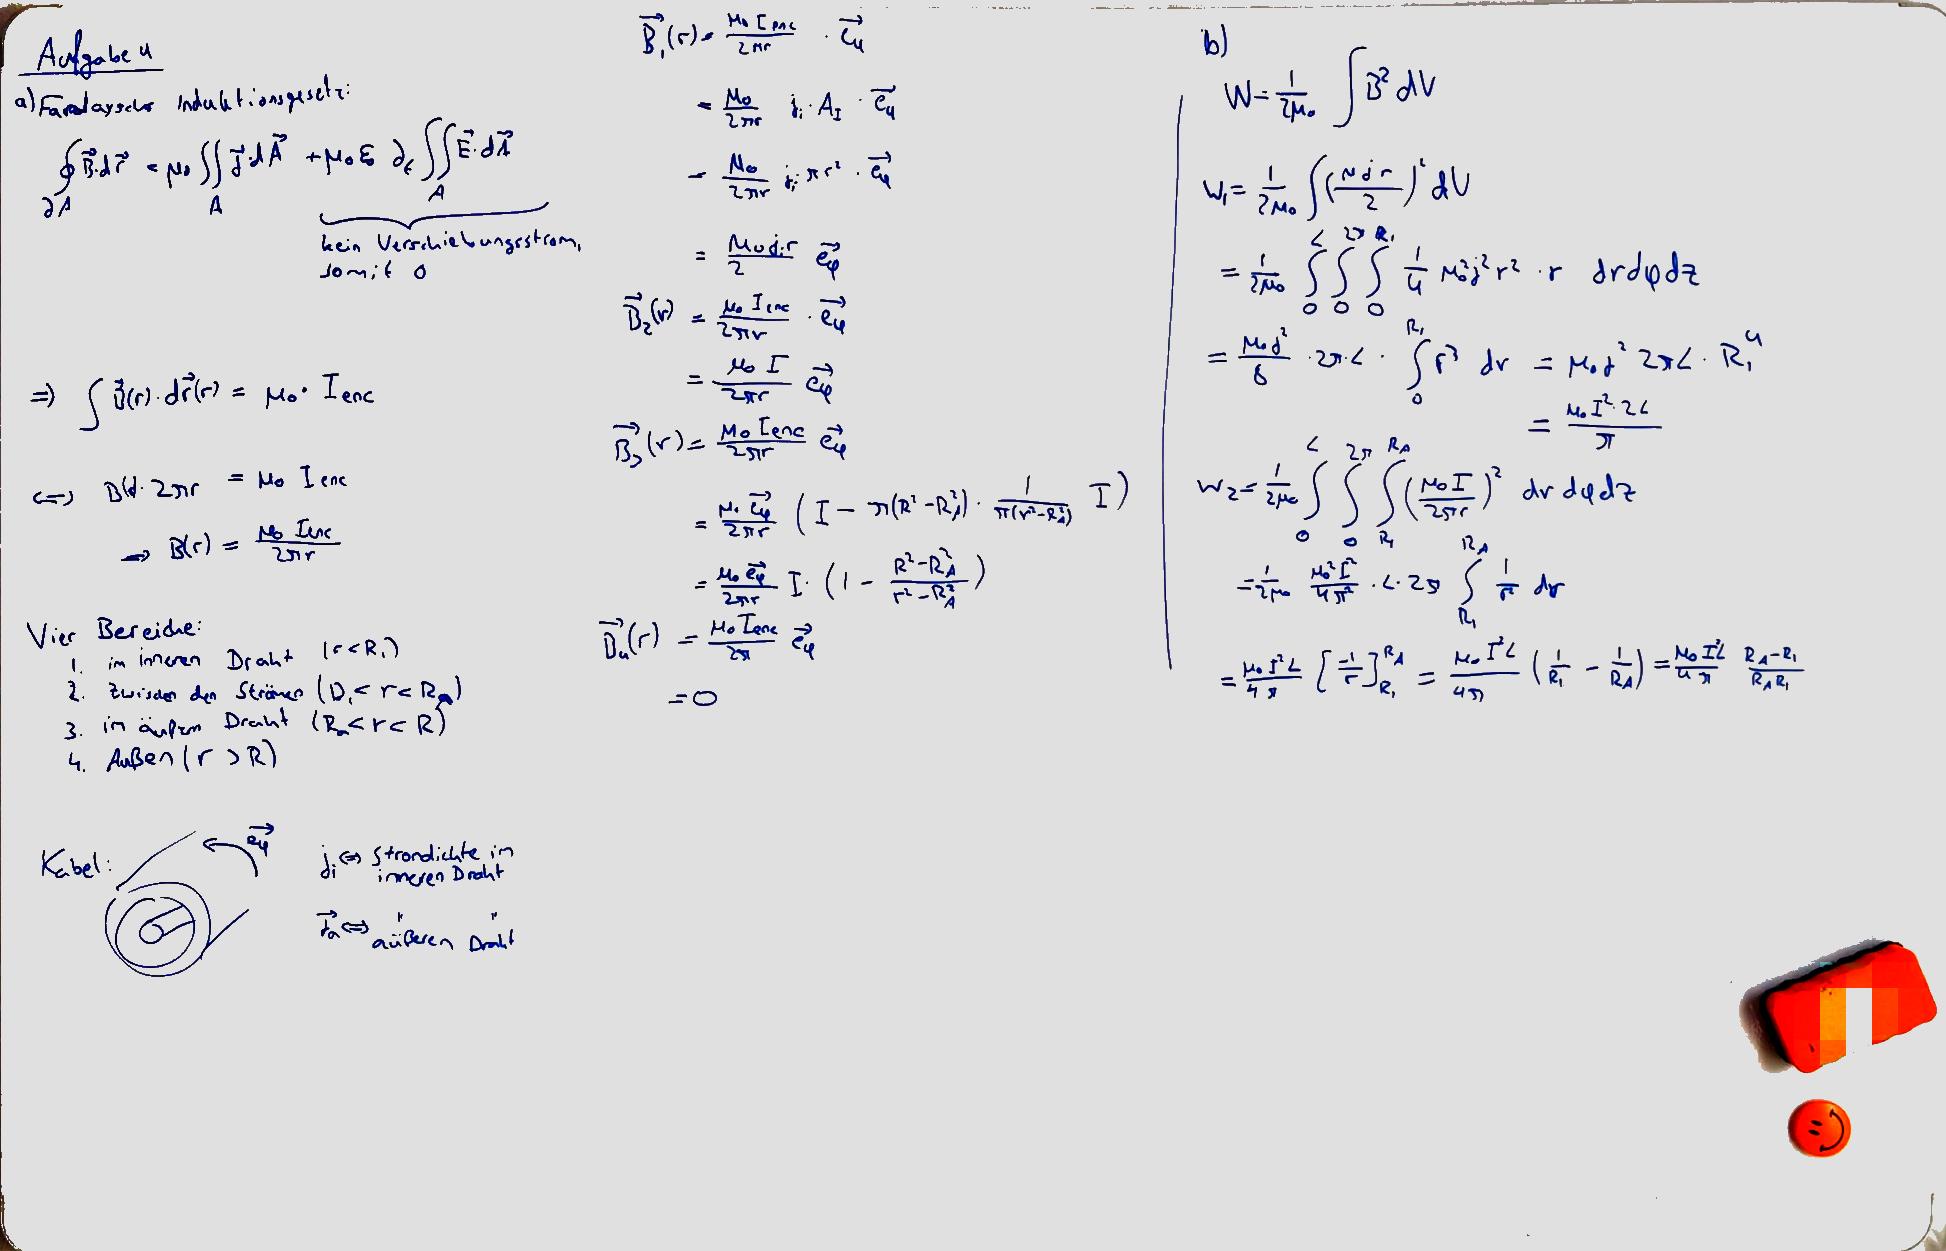 Aufgabe 4
a) Faradaysches Induktionsgesetz:
∮_∂A B⃗·dr⃗ = μ₀ ∬_A j⃗·dA⃗ + μ₀ε₀ ∂ₜ ∬_A E⃗·dA⃗
kein Verschiebungsstrom,
somit 0
⇒ ∫ B⃗(r)·dr⃗(r) = μ₀ · I_enc
⇔ B(r)·2πr = μ₀ I_enc
→ B(r) = μ₀ I_enc / 2πr
Vier Bereiche:
1. im inneren Draht (r<R₁)
2. Zwischen den Strömen ( < r < R_a)
3. im äußren Draht (R_a < r < R)
4. Außen (r > R)
Kabel:
e⃗_φ
j_i ⇔ Stromdichte im
inneren Draht
j⃗_a ⇔ " "
äußeren Draht
B⃗₁(r) = μ₀ I_enc / 2πr · e⃗_φ
= μ₀ / 2πr j_i · A_I · e⃗_φ
= μ₀ / 2πr j_i π r² · e⃗_φ
= μ₀ j_i r / 2 e⃗_φ
B⃗₂(r) = μ₀ I_enc / 2πr · e⃗_φ
= μ₀ I / 2πr e⃗_φ
B⃗₃(r) = μ₀ I_enc / 2πr e⃗_φ
= μ₀ e⃗_φ / 2πr (I − π(R²−R_A²) · 1 / π(r²−R_A²) I)
= μ₀ e⃗_φ / 2πr I · (1 − R²−R_A² / r²−R_A²)
B⃗₄(r) = μ₀ I_enc / 2π e⃗_φ
= 0
b)
W = 1/2μ₀ ∫ B² dV
W₁ = 1/2μ₀ ∫ (μ j r / 2)² dV
= 1/2μ₀ ∫₀^L ∫₀^2π ∫₀^R₁ 1/4 μ₀² j² r² · r dr dφ dz
= μ₀ j² / 8 · 2π · L · ∫₀^R₁ r³ dr = μ₀ j² 2πL · R₁⁴
= μ₀ I² · 2L / π
W₂ = 1/2μ₀ ∫₀^L ∫₀^2π ∫_R₁^R_A (μ₀ I / 2πr)² dr dφ dz
= 1/2μ₀ μ₀² I² / 4π² · L · 2π ∫_R₁^R_A 1/r² dr
= μ₀ I² L / 4π [−1/r]_R₁^R_A = μ₀ I² L / 4π (1/R₁ − 1/R_A) = μ₀ I² L / 4π R_A−R₁ / R_A R₁